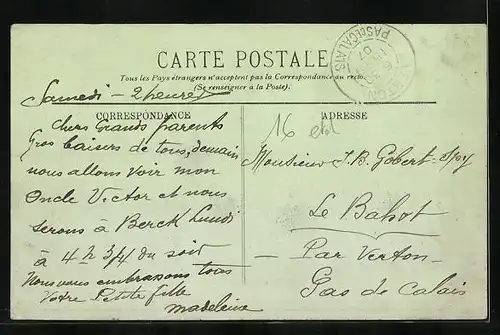 CARTE POSTALE
Tous les Pays étrangers n'acceptent pas la Correspondance au recto
(Se renseigner à la Poste).
PAS DE CALAIS
07
Samedi - 2 heures
CORRESPONDANCE
ADRESSE
16
chers Grands parents
Gros baisers de tous, demain
nous allons voir mon
Oncle Victor et nous
serons à Berck Lundi
à 4h 3/4 du soir
Nous vous embrassons tous
Votre Petite fille
Madeleine
Monsieur J. B. Gobert-Spy
Le Bahot
- Par Verton -
Pas de Calais